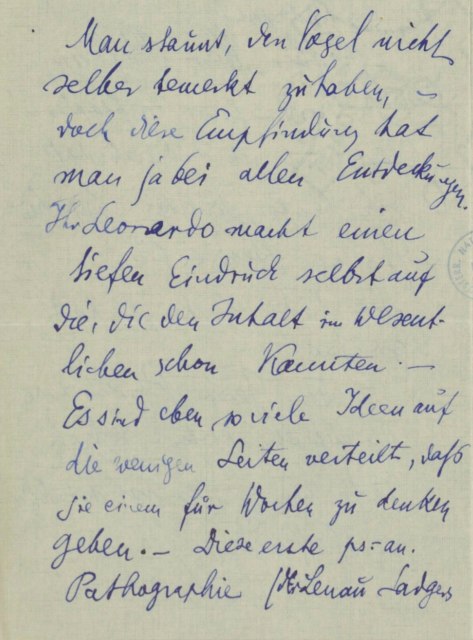 Man staunt, den Vogel nicht
selber bemerkt zu haben, –
doch diese Empfindung hat
man ja bei allen Entdeckungen.
Ihr Leonardo macht einen
tiefen Eindruck selbst auf
die, die den Inhalt im wesent-
lichen schon kannten. –
Es sind eben so viele Ideen auf
die wenigen Seiten verteilt, daß
sie einem für Wochen zu denken
geben. – Diese erste ps-an.
Pathographie (der Lenau Sadgers